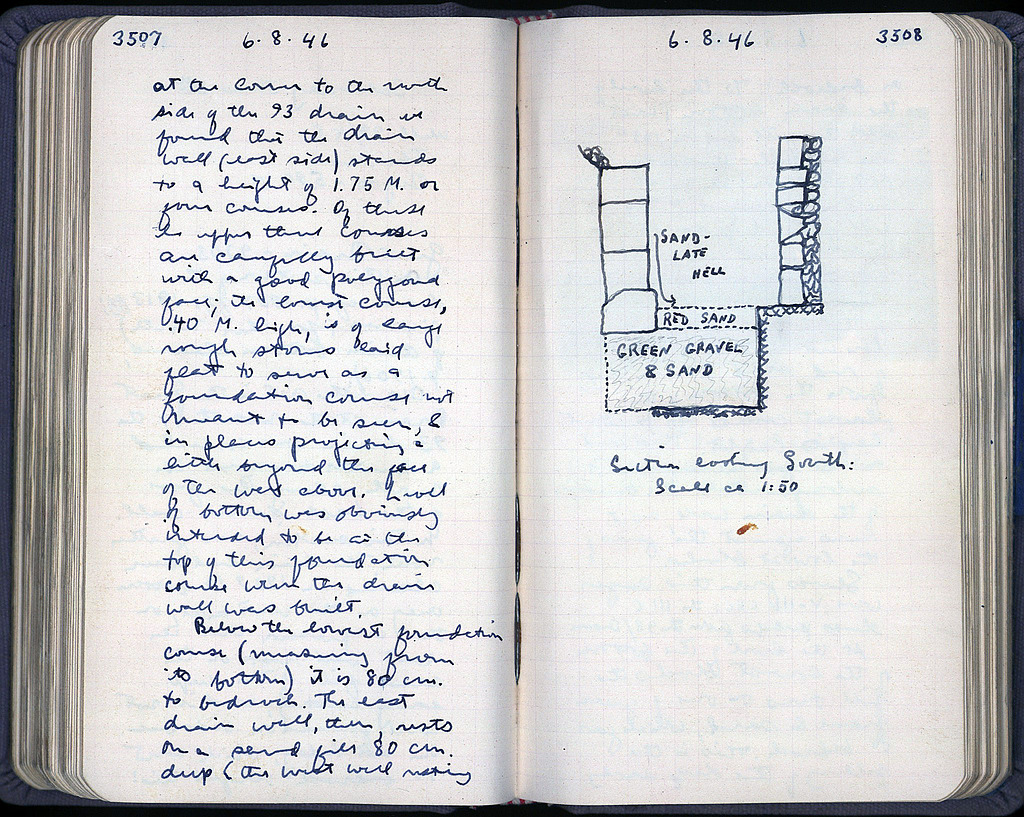 3507
6. 8. 46
at the corner to the north
side of the 93 drain we
found that the drain
wall (east side) stands
to a height of 1.75 M. or
four courses. Of these
the upper three courses
are carefully built
with a good polygonal
face; the lowest course,
.40 M. high, is of large
rough stones laid
flat to serve as a
foundation course not
meant to be seen, &
in places projecting a
little beyond the face
of the wall above. Level
of bottom was obviously
intended to be at the
top of this foundation
course when the drain
wall was built
Below the lowest foundation
course (measuring from
its bottom) it is 80 cm.
to bedrock. The east
drain wall, then, rests
on a sand fill 80 cm.
deep (the west wall resting
6. 8. 46
3508
SAND-
LATE
HELL
RED SAND
GREEN GRAVEL
& SAND
Section looking South:
Scale ca 1:50